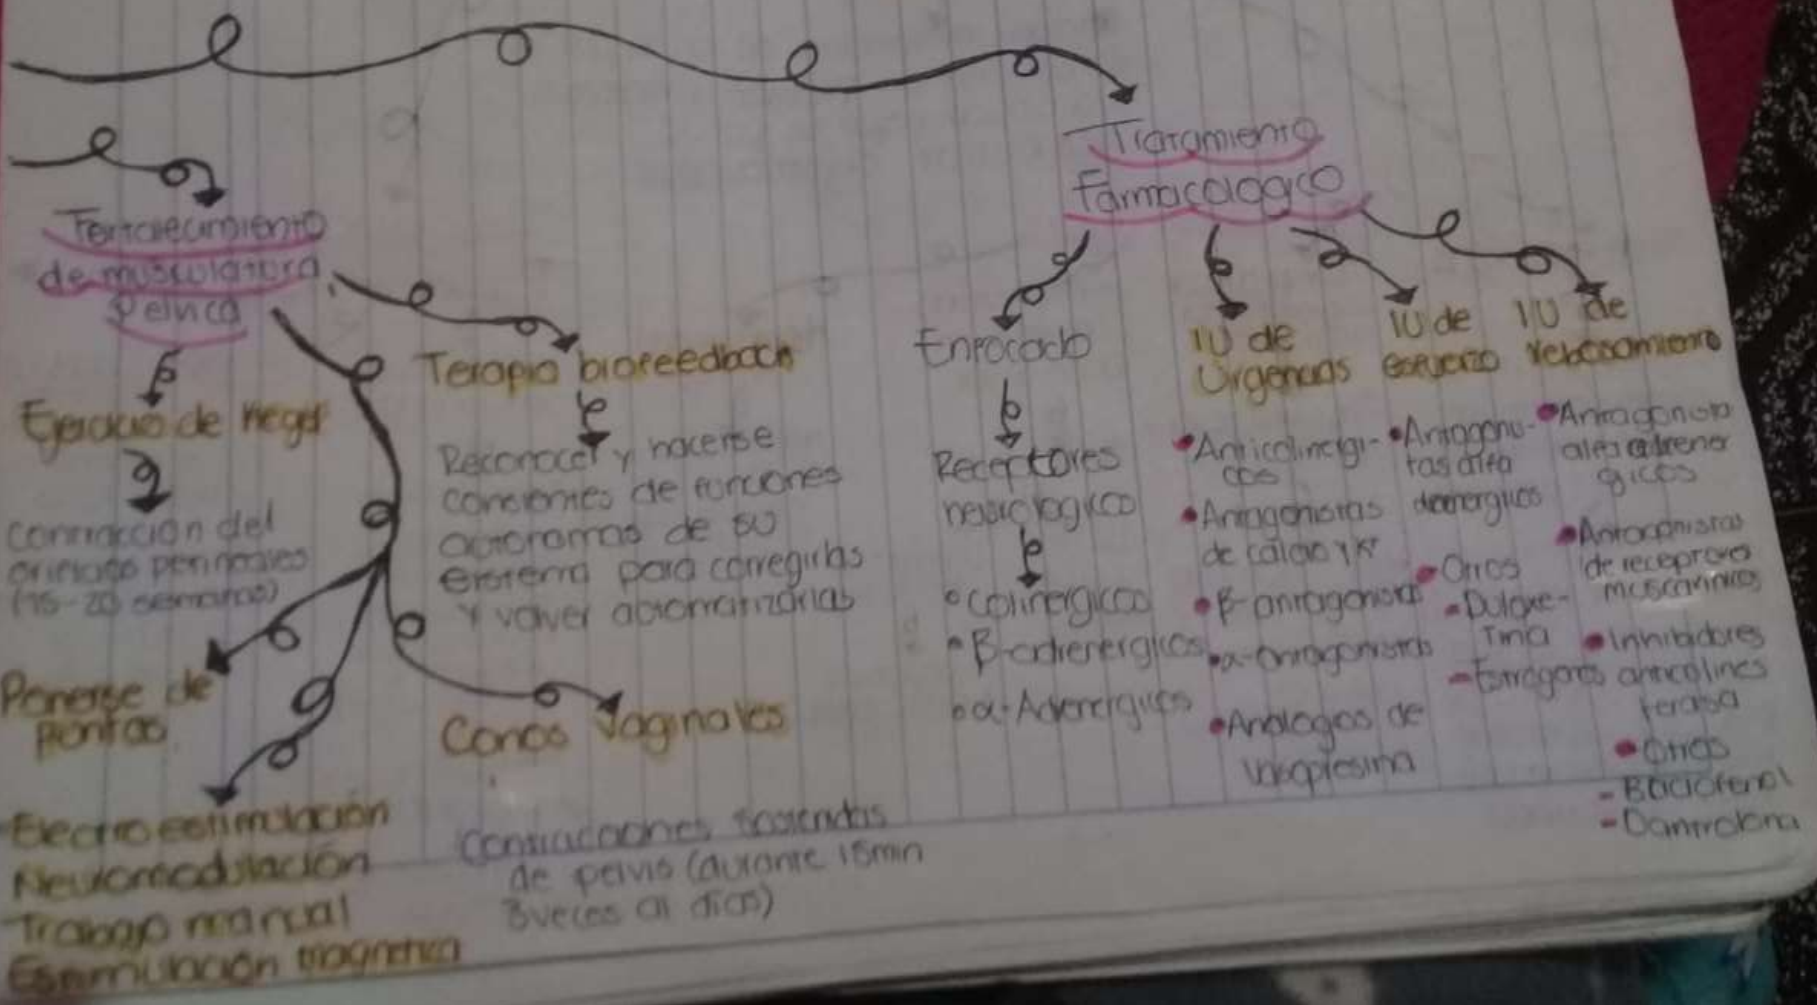 Fortalecimiento
de musculatura
Pelvica
Ejercicio de Kegel
contracción del
perineales
(15-20 semanas)
Ponerse de
puntas
Electroestimulación
Neuromodulación
Trabajo manual
Estimulación magnetica
Terapia biofeedback
Reconocer y hacerse
concientes de funciones
de su
para corregirlas
y volver automatizarlas
Conos Vaginales
Contracciones sostenidas
de pelvis (durante 15min
3 veces al dia)
Tratamiento
Farmacologico
Enfocado
Receptores
neurologico
Colinergicos
β-adrenergicos
α-Adrenergicos
IU de
Urgencias
Anticolinergi-
cos
Antagonistas
de calcio y K+
β-antagonista
α-antagonistas
Analogos de
IU de
esfuerzo
Antagonis-
tas alfa
Otros
-Duloxe-
tina
-Estrogenos
IU de
rebosamiento
Antagonista
alfa adrener
gicos
Antagonistas
de receptores
muscarinicos
Inhibidores
anticolines
terasa
Otros
-Baclofenol
-Dantrolena